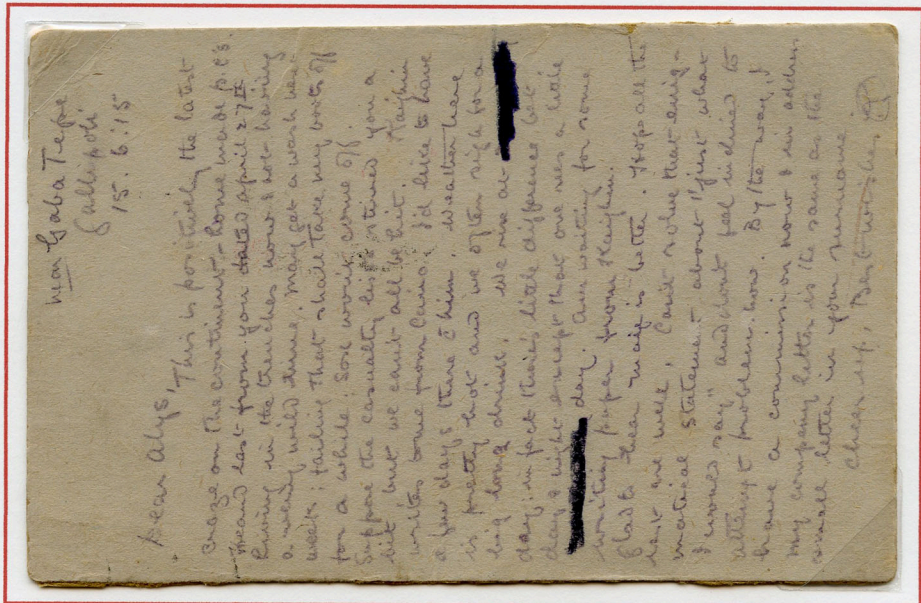 near Gaba Tepe
Gallipoli
15.6.15
Dear Alys, This is positively the latest
craze on the continent - home made p.c's.
Heard last from you dated April 27th
Living in the trenches now & not having
a wildly time, may get a wash next
week failing that shall take my boots off
for a while. Sox won't come off.
Suppose the casualty lists stirred you a
bit but we can't all be hit. Haighin
writes some from Cairo. I'd like to have
a few days there c him. Weather here
is pretty hot and we often sigh for a
big long drink. We rise at
day, in fact there's little difference bet
day & night except that one sees a little
day. Am waiting for some
writing paper from Haighin.
Glad to hear is better. Hope all the
rest are well. Can't solve that enig-
matical statement about "just what
I would say" and don't feel inclined to
attempt problems now. By the way, I
have a commission now & in address
my company letter is the same as the
small letter in your surname.
Cheer up, Best wishes,